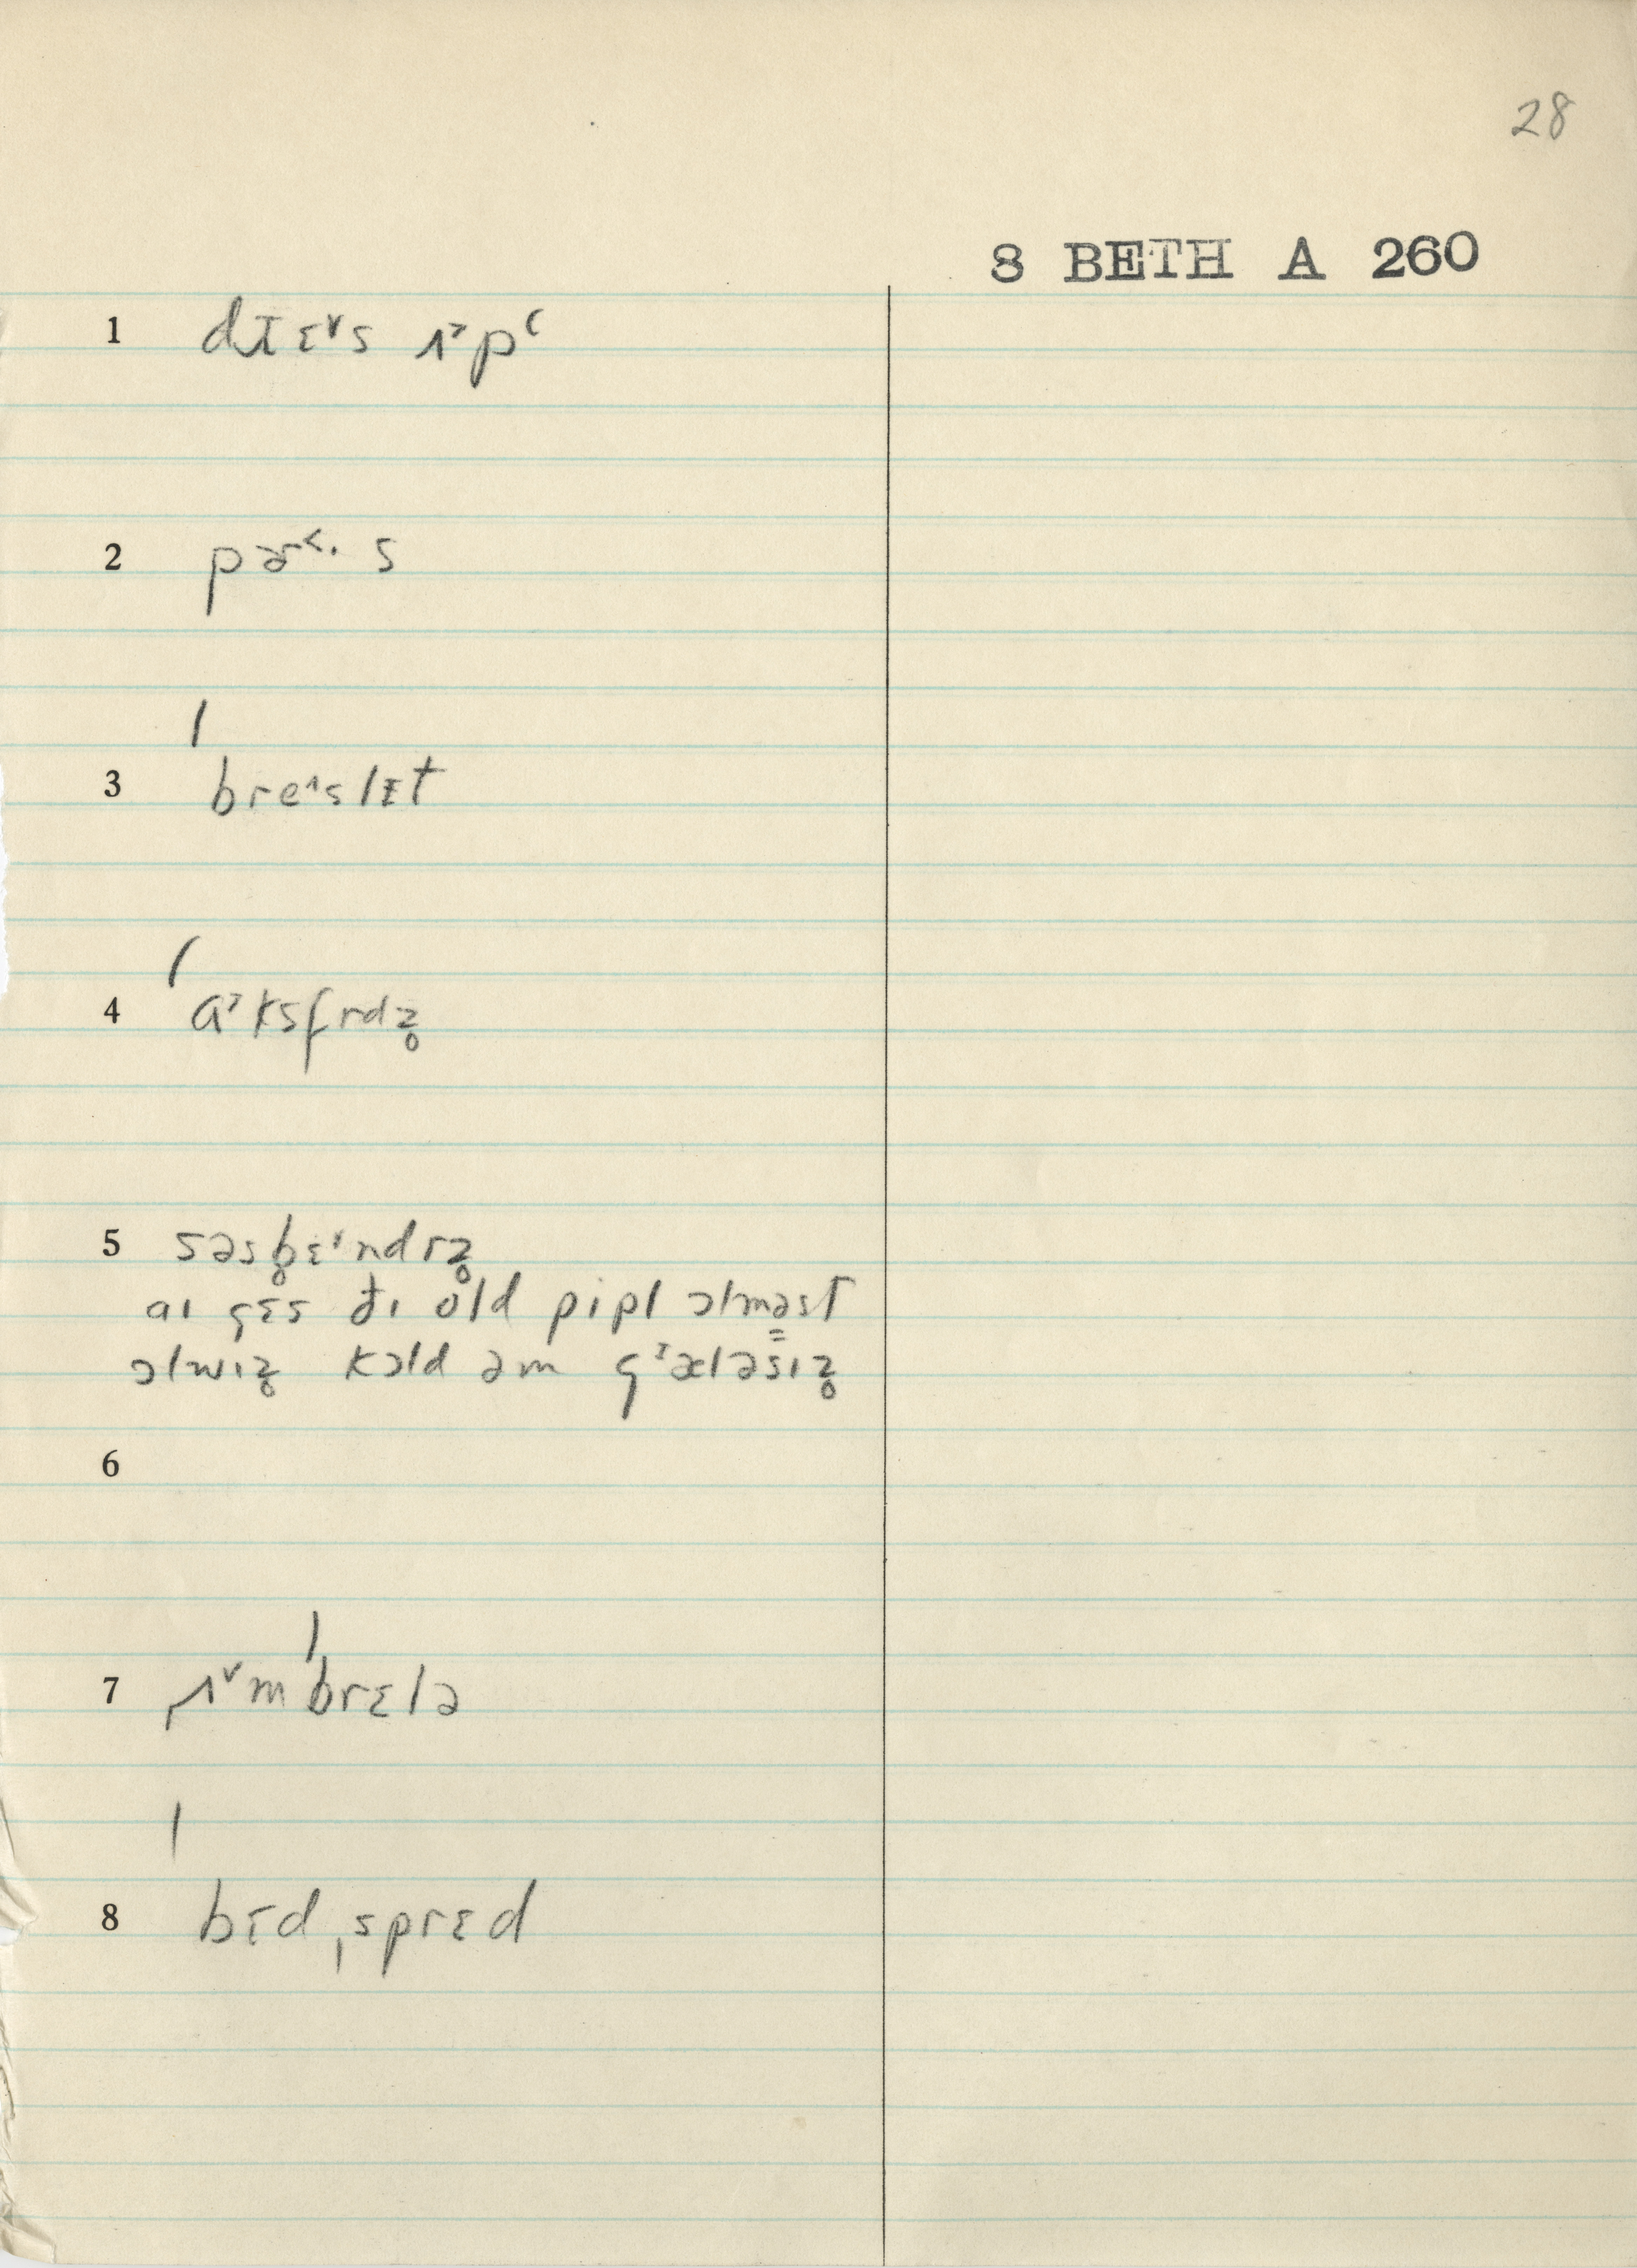 28
8 BETH A 260
1 drɛ˅s ʌ˃pʻ
2 pɚ˂· s
3 ˈbre˄slɪt
4 ˈɑ˃ksfrdz̥
5 səsb̥ɛ˅ndrz̥
aɪ gɛs ðɪ old pipl ɔlməst
ɔlwɪz̥ kɔld əm g˃æləsɪz̥
6
7 ˌʌ˅mˈbrɛlə
8 ˈbɛdˌsprɛd